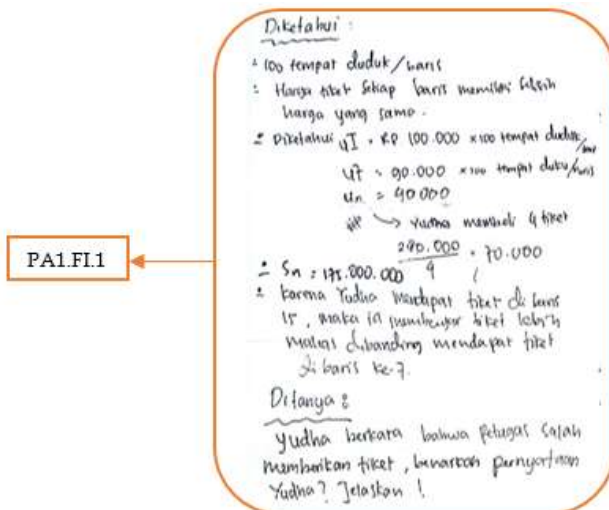 Diketahui :
- 100 tempat duduk/baris
- Harga tiket setiap baris memiliki selisih
harga yang sama.
- Diketahui U1 = RP 100.000 × 100 tempat duduk/
U7 = 90.000 × 100 tempat duduk/baris
Un = 40000
→ Yudha membeli 4 tiket
280.000 / 4 = 70.000
- Sn = 175.000.000
- Karena Yudha mendapat tiket di baris
15, maka ia membayar tiket lebih
mahal dibanding mendapat tiket
di baris ke-7.
PA1.FI.1
Ditanya :
Yudha berkata bahwa petugas salah
memberikan tiket, benarkah pernyataan
Yudha? Jelaskan !